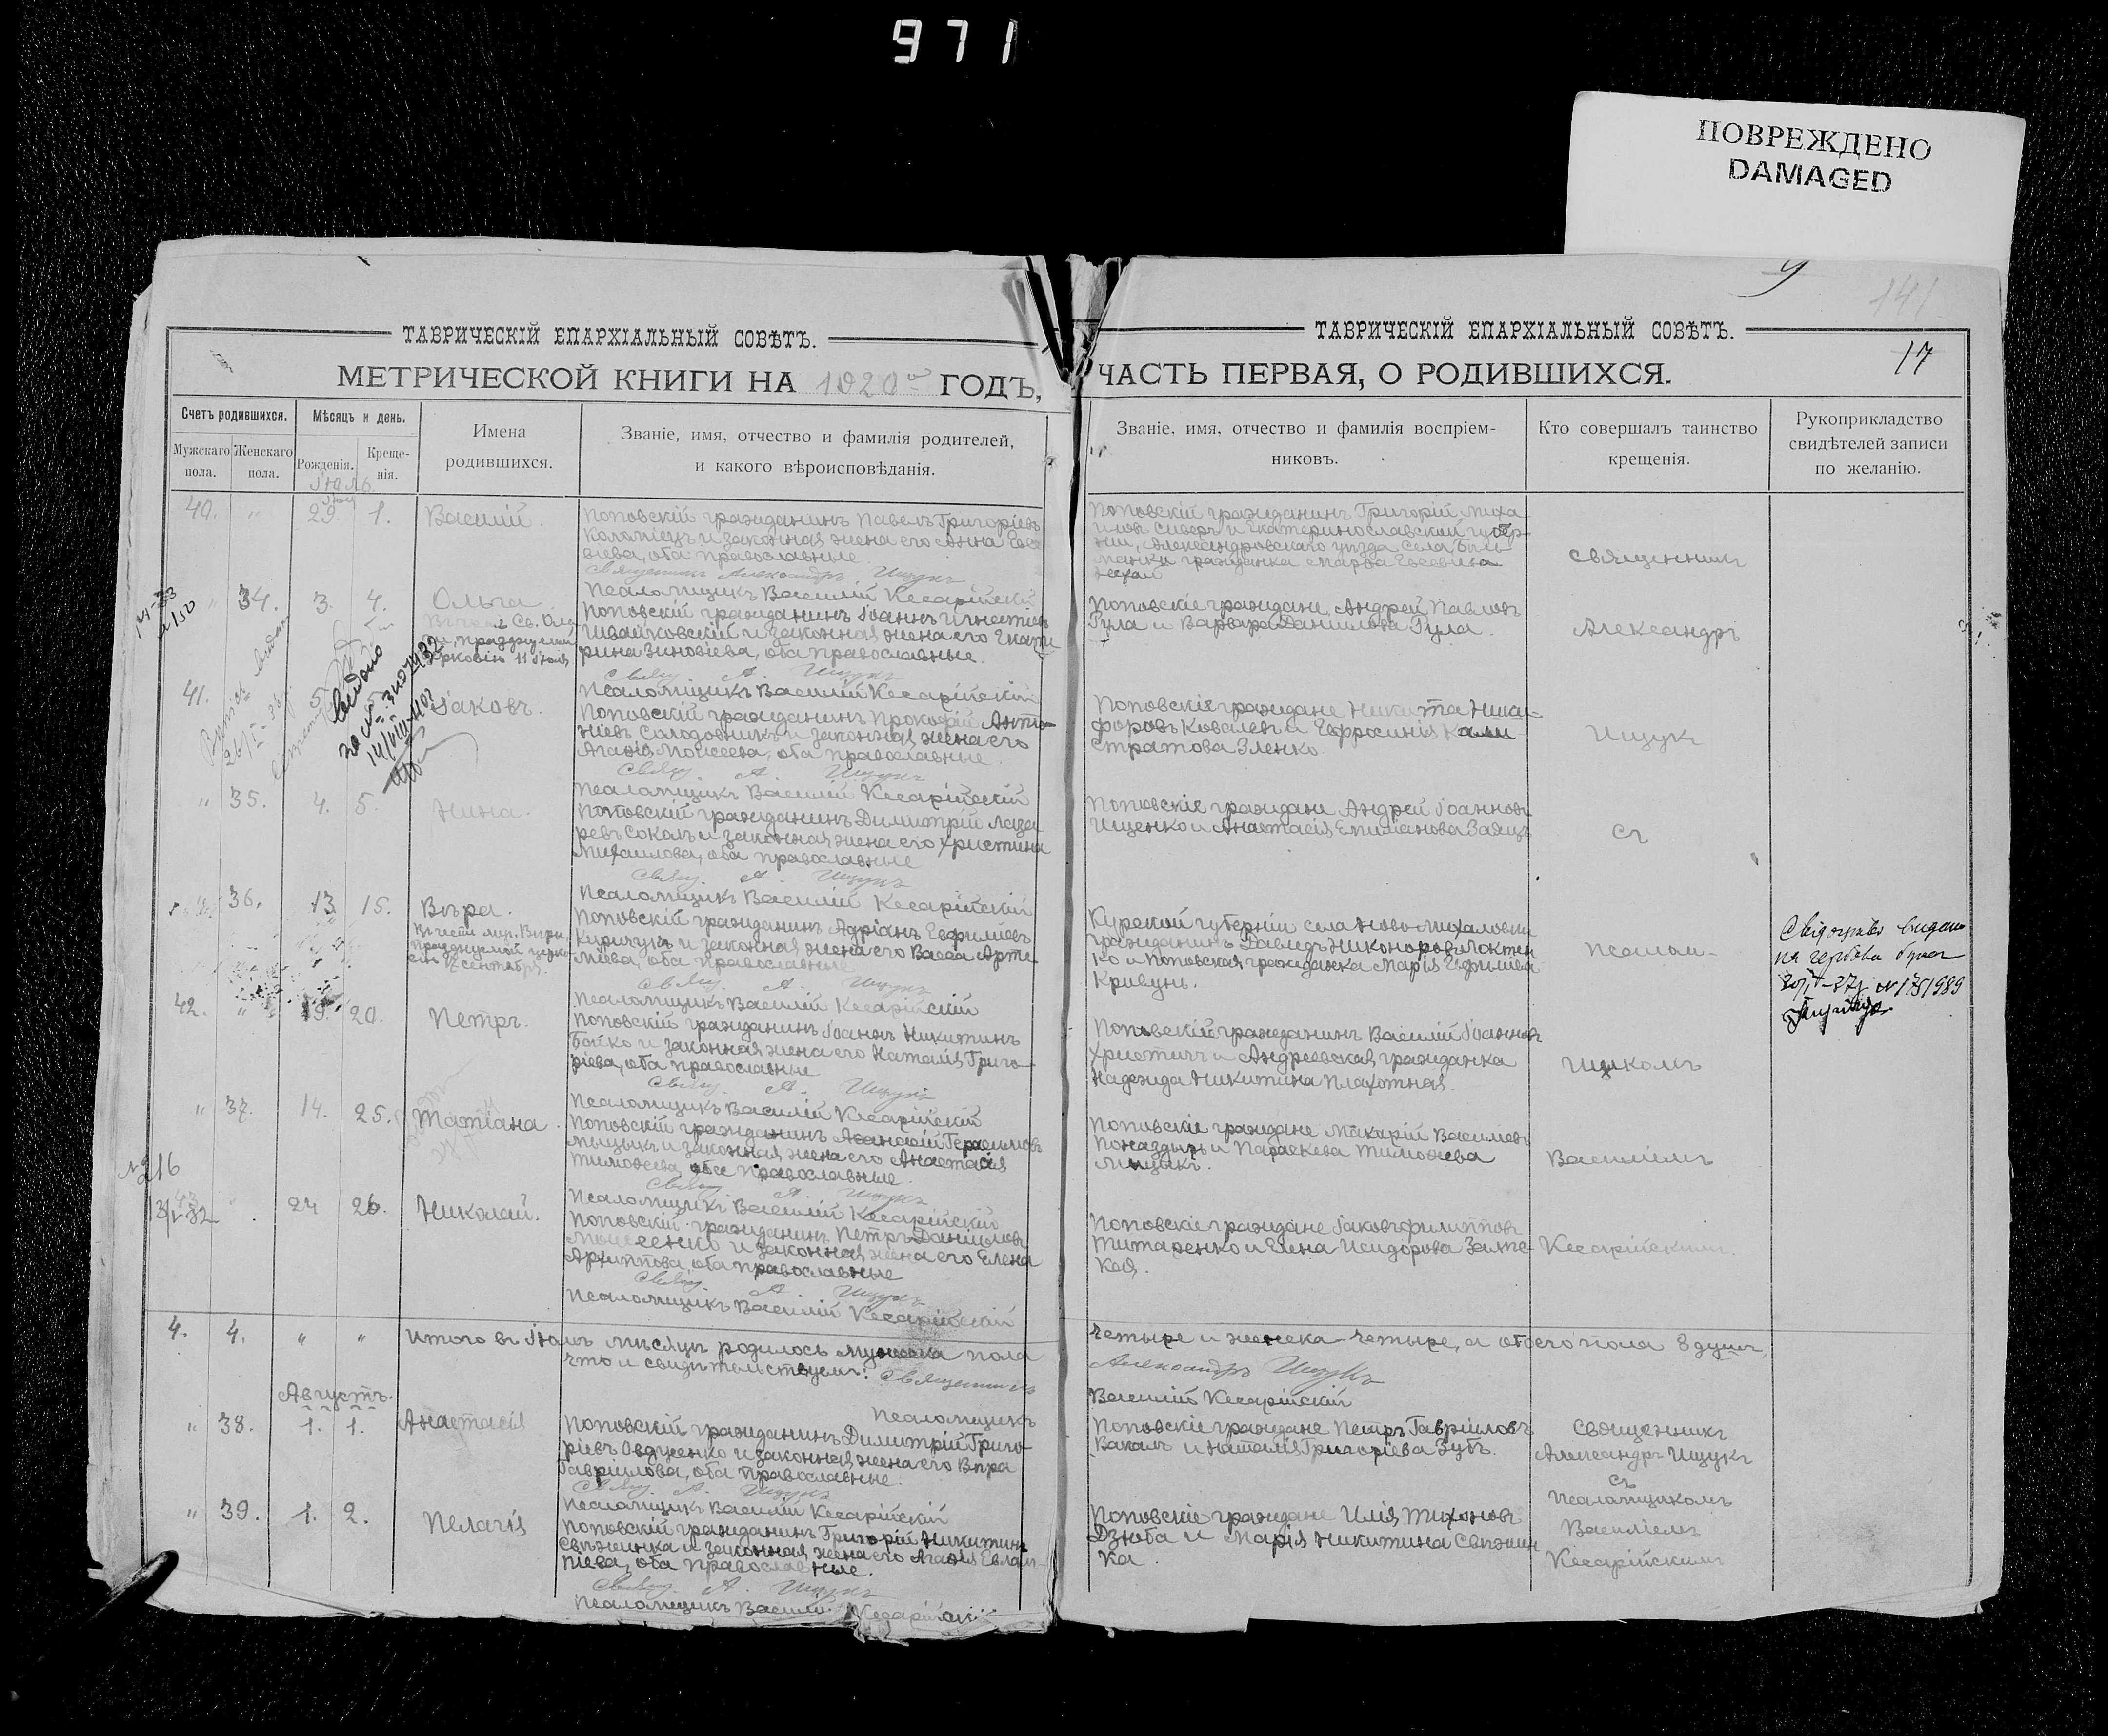 971
ПОВРЕЖДЕНО
DAMAGED
141
17
ТАВРИЧЕСКІЙ ЕПАРХІАЛЬНЫЙ СОВѢТЪ.
МЕТРИЧЕСКОЙ КНИГИ НА 1920й ГОДЪ,
Счетъ родившихся.
Мужскаго пола.
Женскаго пола.
Мѣсяцъ и день.
Рожденія.
Крещенія.
Имена
родившихся.
Званіе, имя, отчество и фамилія родителей,
и какого вѣроисповѣданія.
ТАВРИЧЕСКІЙ ЕПАРХІАЛЬНЫЙ СОВѢТЪ.
ЧАСТЬ ПЕРВАЯ, О РОДИВШИХСЯ.
Званіе, имя, отчество и фамилія воспріем-
никовъ.
Кто совершалъ таинство
крещенія.
Рукоприкладство
свидѣтелей записи
по желанію.
Іюль
40. " 29. 1. Василій.
Поповскій гражданинъ Павелъ Григоріевъ
Коломіецъ и законная жена его Анна
оба православные.
Священникъ Александръ Ищукъ
Псаломщикъ Василій Кесарійскій
Поповскій гражданинъ Григорій
и Екатеринославской губер-
ніи, Александровскаго уѣзда села
гражданка Марфа
Священникъ
" 34. 3. 4. Ольга
Св.
празднуемой
церковію 11 Іюля
Поповскій гражданинъ Іоаннъ Игнатіевъ
Швайковскій и законная жена его Екате
рина Зиновіева, оба православные.
Свящ. А. Ищукъ
Псаломщикъ Василій Кесарійскій
Поповскіе граждане Андрей Павловъ
Гула и Варвара Данилова Гула.
Александръ
41. 5. Іаковъ.
Поповскій гражданинъ Прокофій Анто-
ніевъ Солодовникъ и законная жена его
Агафія Моисеева, оба православные.
Свящ. А. Ищукъ
Псаломщикъ Василій Кесарійскій
Поповскіе граждане Никита Ники-
форовъ Ковалевъ и Евфросинія Кали-
стратова Зленко
Ищукъ
" 35. 4. 5. Нина.
Поповскій гражданинъ Димитрій Лаза
ревъ Сокалъ и законная жена его Христина
Михаилова, оба православные
Свящ. А. Ищукъ
Псаломщикъ Василій Кесарійскій
Поповскіе граждане Андрей Іоанновъ
Ищенко и Анастасія Епифанова Заяцъ
съ
36. 13 15. Вѣра.
Въ честь муч. Вѣры,
празднуемой церко-
вію 17 сентября.
Поповскій гражданинъ Адріанъ Евфиміевъ
Киричукъ и законная жена его Васса Арте-
міева, оба православные
Свящ. А. Ищукъ
Псаломщикъ Василій Кесарійскій
Курской губерніи села Ново-Михаловки
гражданинъ Давидъ Никоноровъ Локтен
ко и Поповская гражданка Марія Евфиміева
Кривунь.
Псалом-
Свідоцтво видано
на гербова
42. " 19. 20. Петръ.
Поповскій гражданинъ Іоаннъ Никитинъ
Бойко и законная жена его Наталія Григо-
ріева, оба православные
Свящ. А. Ищукъ
Псаломщикъ Василій Кесарійскій
Поповскій гражданинъ Василій Іоанновъ
Христичъ и Андреевская гражданка
Надежда Никитина Плахотная.
щикомъ
" 37. 14. 25. Татіана
Поповскій гражданинъ Афанасій Герасимовъ
Мыцыкъ и законная жена его Анастасія
Тимофеева, оба православные.
Свящ. А. Ищукъ
Псаломщикъ Василій Кесарійскій
Поповскіе граждане Макарій Васильевъ
Поназдырь и Параскева Тимофеева
Мыцыкъ.
Василіемъ
№216
43. 24 26. Николай.
Поповскій гражданинъ Петръ Даніиловъ
Моисеенко и законная жена его Елена
Архиппова, оба православные
Свящ. А. Ищукъ
Псаломщикъ Василій Кесарійскій
Поповскіе граждане Іаковъ Филипповъ
Титаренко и Елена Исидорова
Кесарійскимъ.
4. 4. " " Итого въ Іюлѣ мѣсяцѣ родилось мужеска пола
четыре и женска четыре, а обоего пола 8 душъ,
что и свидѣтельствуемъ: Священникъ
Александръ Ищукъ
Псаломщикъ
Василій Кесарійскій
Августъ.
" 38. 1. 1. Анастасія
Поповскій гражданинъ Димитрій Григо-
ріевъ Овдіенко и законная жена его Вѣра
Гавріилова, оба православные.
Свящ. А. Ищукъ
Псаломщикъ Василій Кесарійскій
Поповскіе граждане Петръ Гавріиловъ
Вакалъ и Наталія Григоріева Зубъ.
Священникъ
Александръ Ищукъ
съ
Псаломщикомъ
Василіемъ
Кесарійскимъ
" 39. 1. 2. Пелагія
Поповскій гражданинъ Григорій Никитинъ
Свѣжинка и законная жена его Агафія Евлам-
піева, оба православные.
Свящ. А. Ищукъ
Псаломщикъ Василій Кесарійскій
Поповскіе граждане Илія Тихоновъ
Дзюба и Марія Никитина Свѣжин
ка.